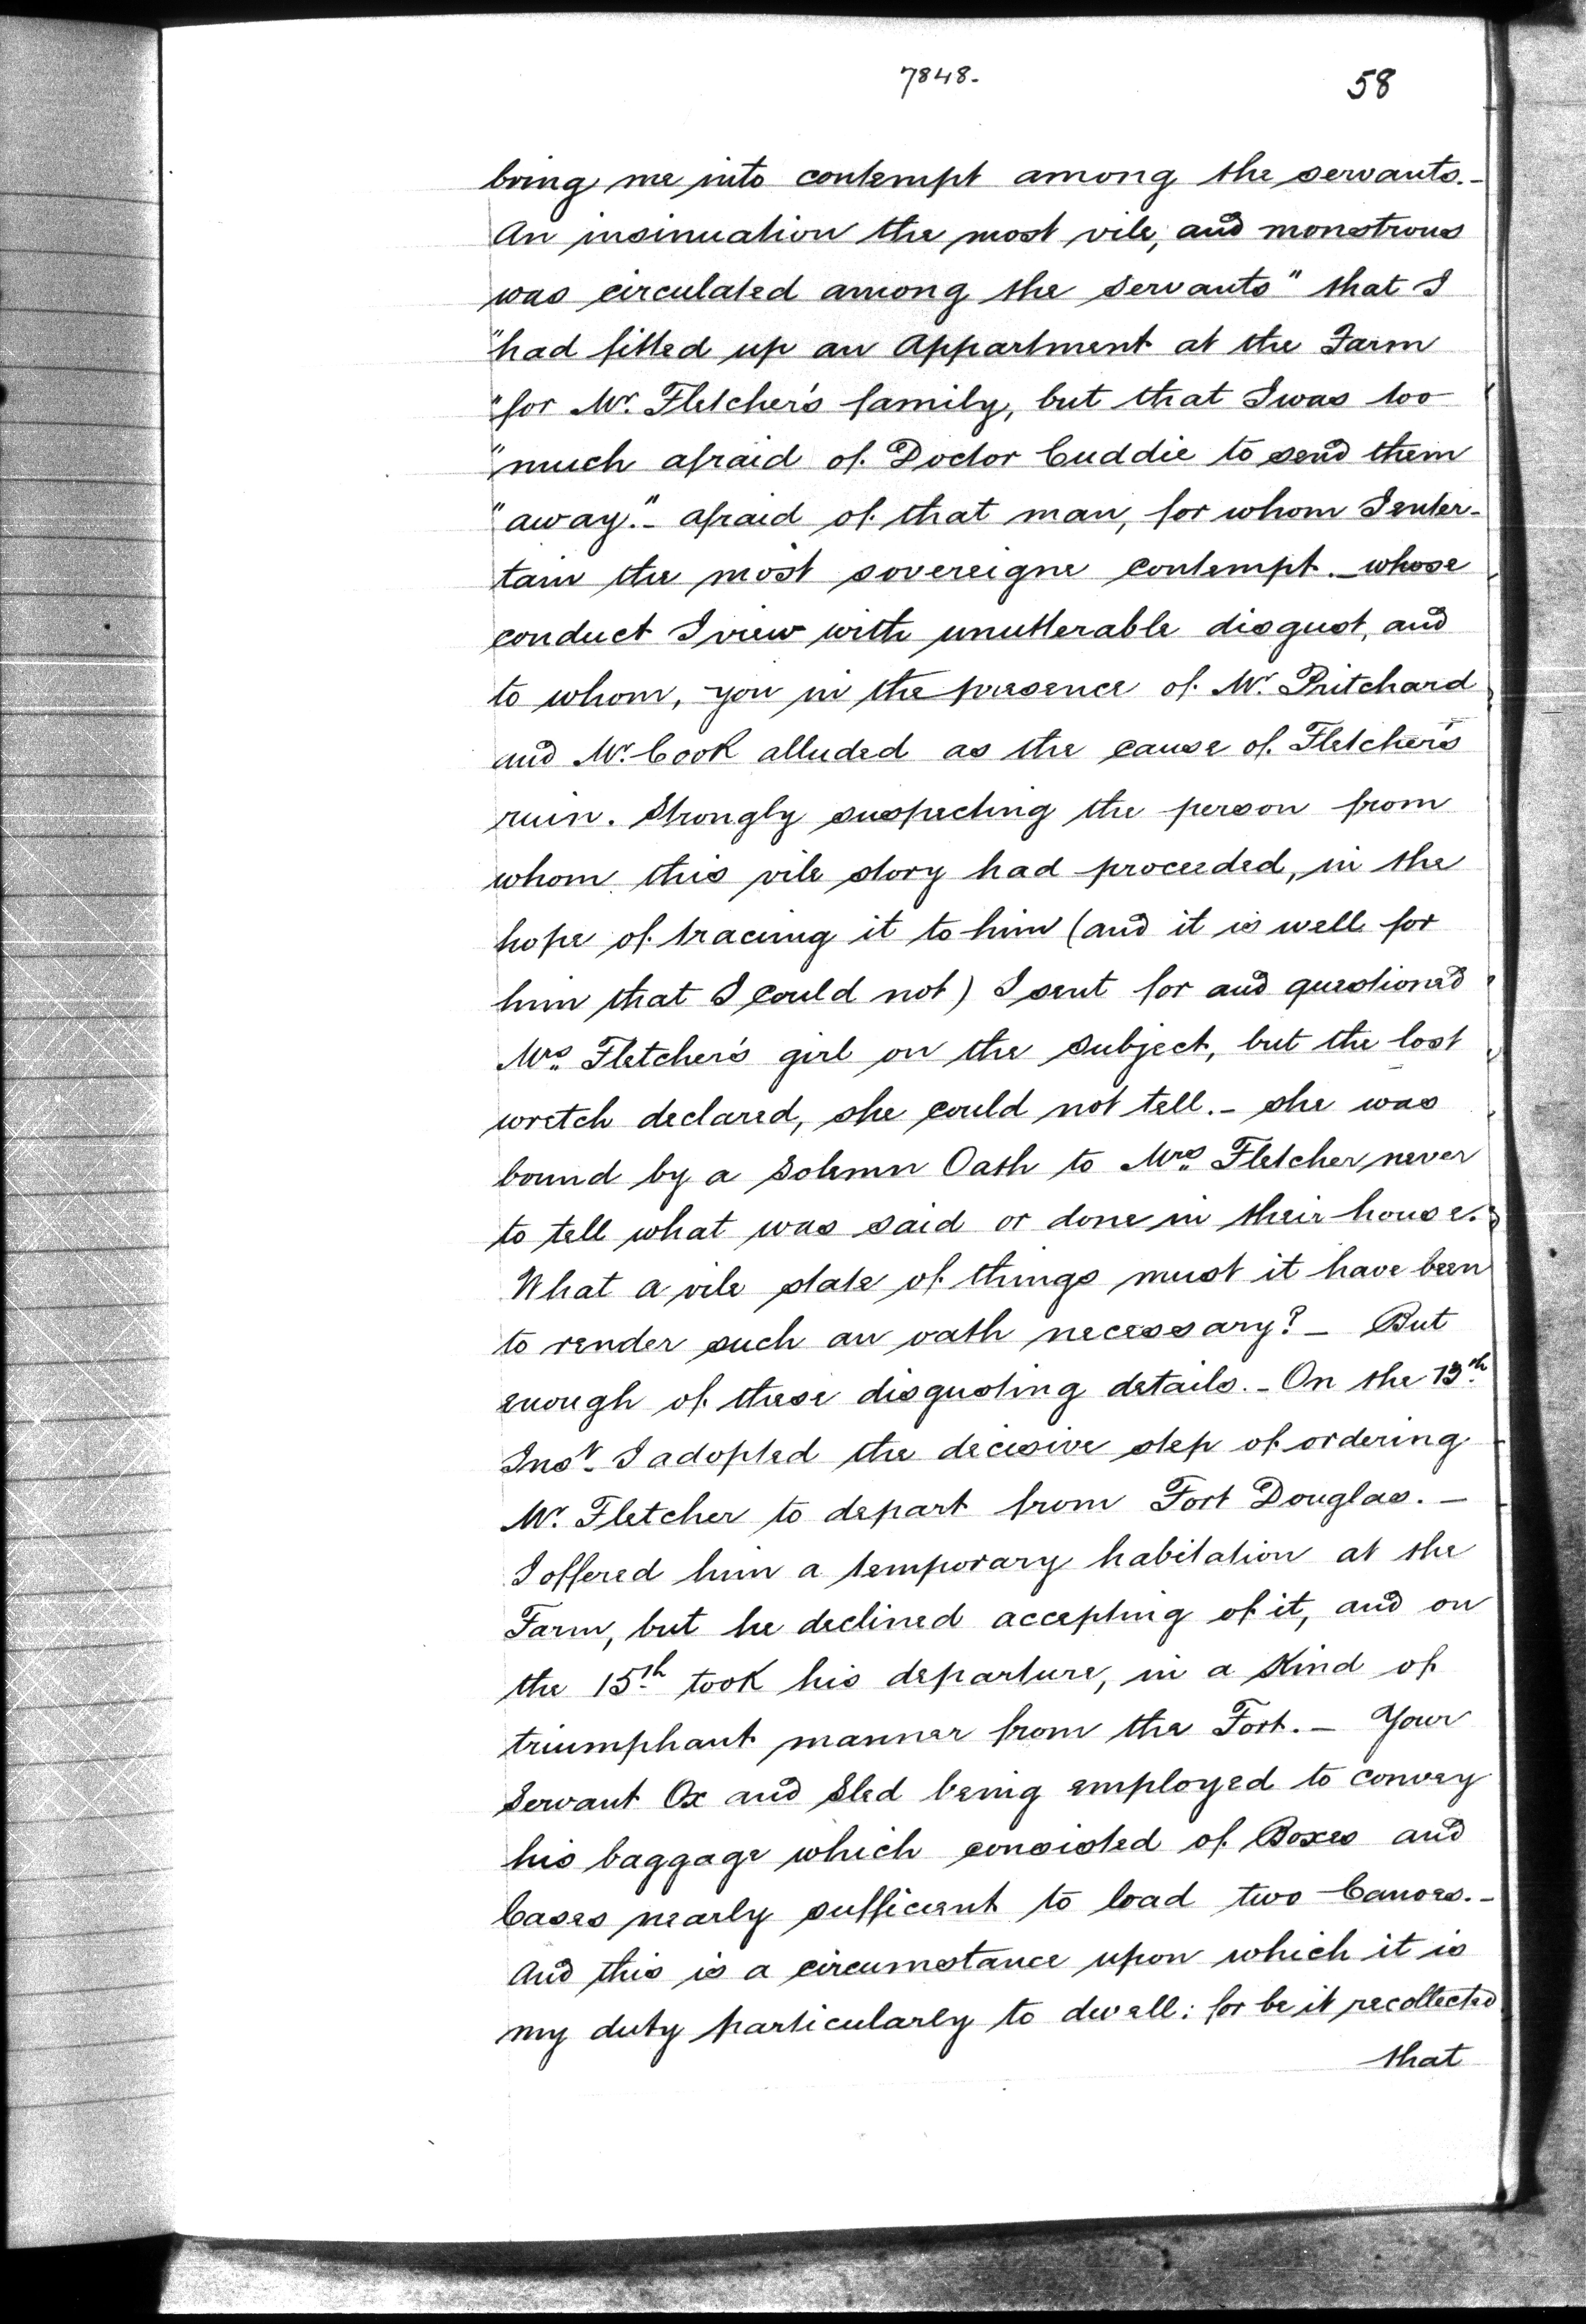 7848.
58
bring me into contempt among the servants.-
An insinuation the most vile, and monstrous
was circulated among the Servants" that I
"had fitted up an Appartment at the Farm
"for Mr. Fletcher's family, but that I was too
"much afraid of Doctor Cuddie to send them
"away."- afraid of that man, for whom I enter-
tain the most sovereigne contempt._ whose
conduct I view with unutterable disgust, and
to whom, you in the presence of Mr. Pritchard
and Mr. Cook alluded as the cause of Fletcher's
ruin. Strongly suspecting the person from
whom this vile story had proceeded, in the
hope of tracing it to him (and it is well for
him that I could not) I sent for and question'd
Mrs. Fletcher's girl on the subject, but the lost
wretch declared, she could not tell.- she was
bound by a Solemn Oath to Mrs. Fletcher never
to tell what was said or done in their house.
What a vile state of things must it have been
to render such an oath necessary? _ But
enough of these disgusting details. - On the 13th
Inst. I adopted the decisive step of ordering
Mr. Fletcher to depart from Fort Douglas. _
I offered him a temporary habitation at the
Farm, but he declined accepting of it, and on
the 15th took his departure, in a Kind of
triumphant manner from the Fort. _ Your
Servant Ox and Sled being employed to convey
his baggage which consisted of Boxes and
Cases nearly sufficient to load two Canoes. -
And this is a circumstance upon which it is
my duty particularly to dwell: for be it recollected
that